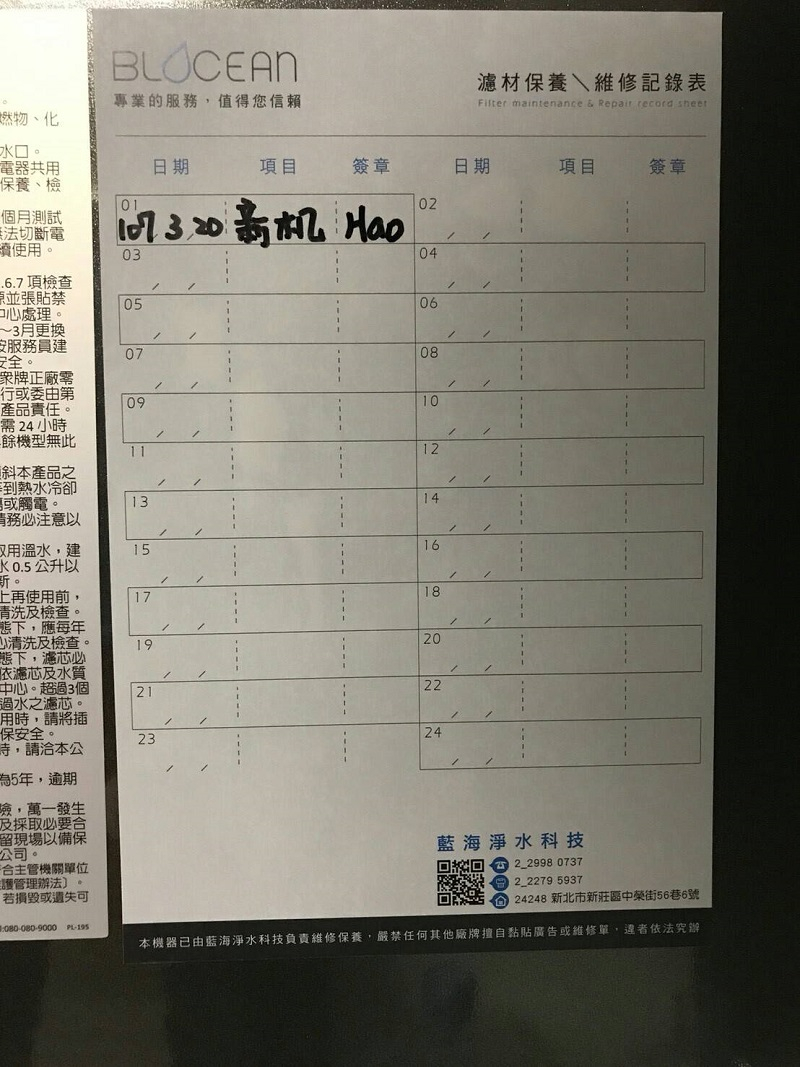 BLOCEAN
專業的服務，值得您信賴
濾材保養＼維修記錄表
Filter maintenance & Repair record sheet
日期 項目 簽章 日期 項目 簽章
01 107 3 20 新机 Hao 02
03 04
05 06
07 08
09 10
11 12
13 14
15 16
17 18
19 20
21 22
23 24
藍海淨水科技
2_2998 0737
2_2279 5937
24248 新北市新莊區中榮街56巷6號
本機器已由藍海淨水科技負責維修保養，嚴禁任何其他廠牌擅自黏貼廣告或維修單，違者依法究辦
燃物、化
水口。
電器共用
保養、檢
個月測試
無法切斷電
續使用。
.6.7 項檢查
源並張貼禁
中心處理。
～3月更換
按服務員建
安全。
眾牌正廠零
行或委由第
產品責任。
需 24 小時
餘機型無此
傾斜本產品之
等到熱水冷卻
傷或觸電。
請務必注意以
取用溫水，建
水 0.5 公升以
新。
上再使用前，
清洗及檢查。
態下，應每年
心清洗及檢查。
態下，濾芯必
依濾芯及水質
中心。超過3個
過水之濾芯。
用時，請將插
保安全。
時，請洽本公
為5年，逾期
險，萬一發生
及採取必要合
留現場以備保
公司。
合主管機關單位
護管理辦法〕。
若損毀或遺失可
:080-080-9000 PL-195